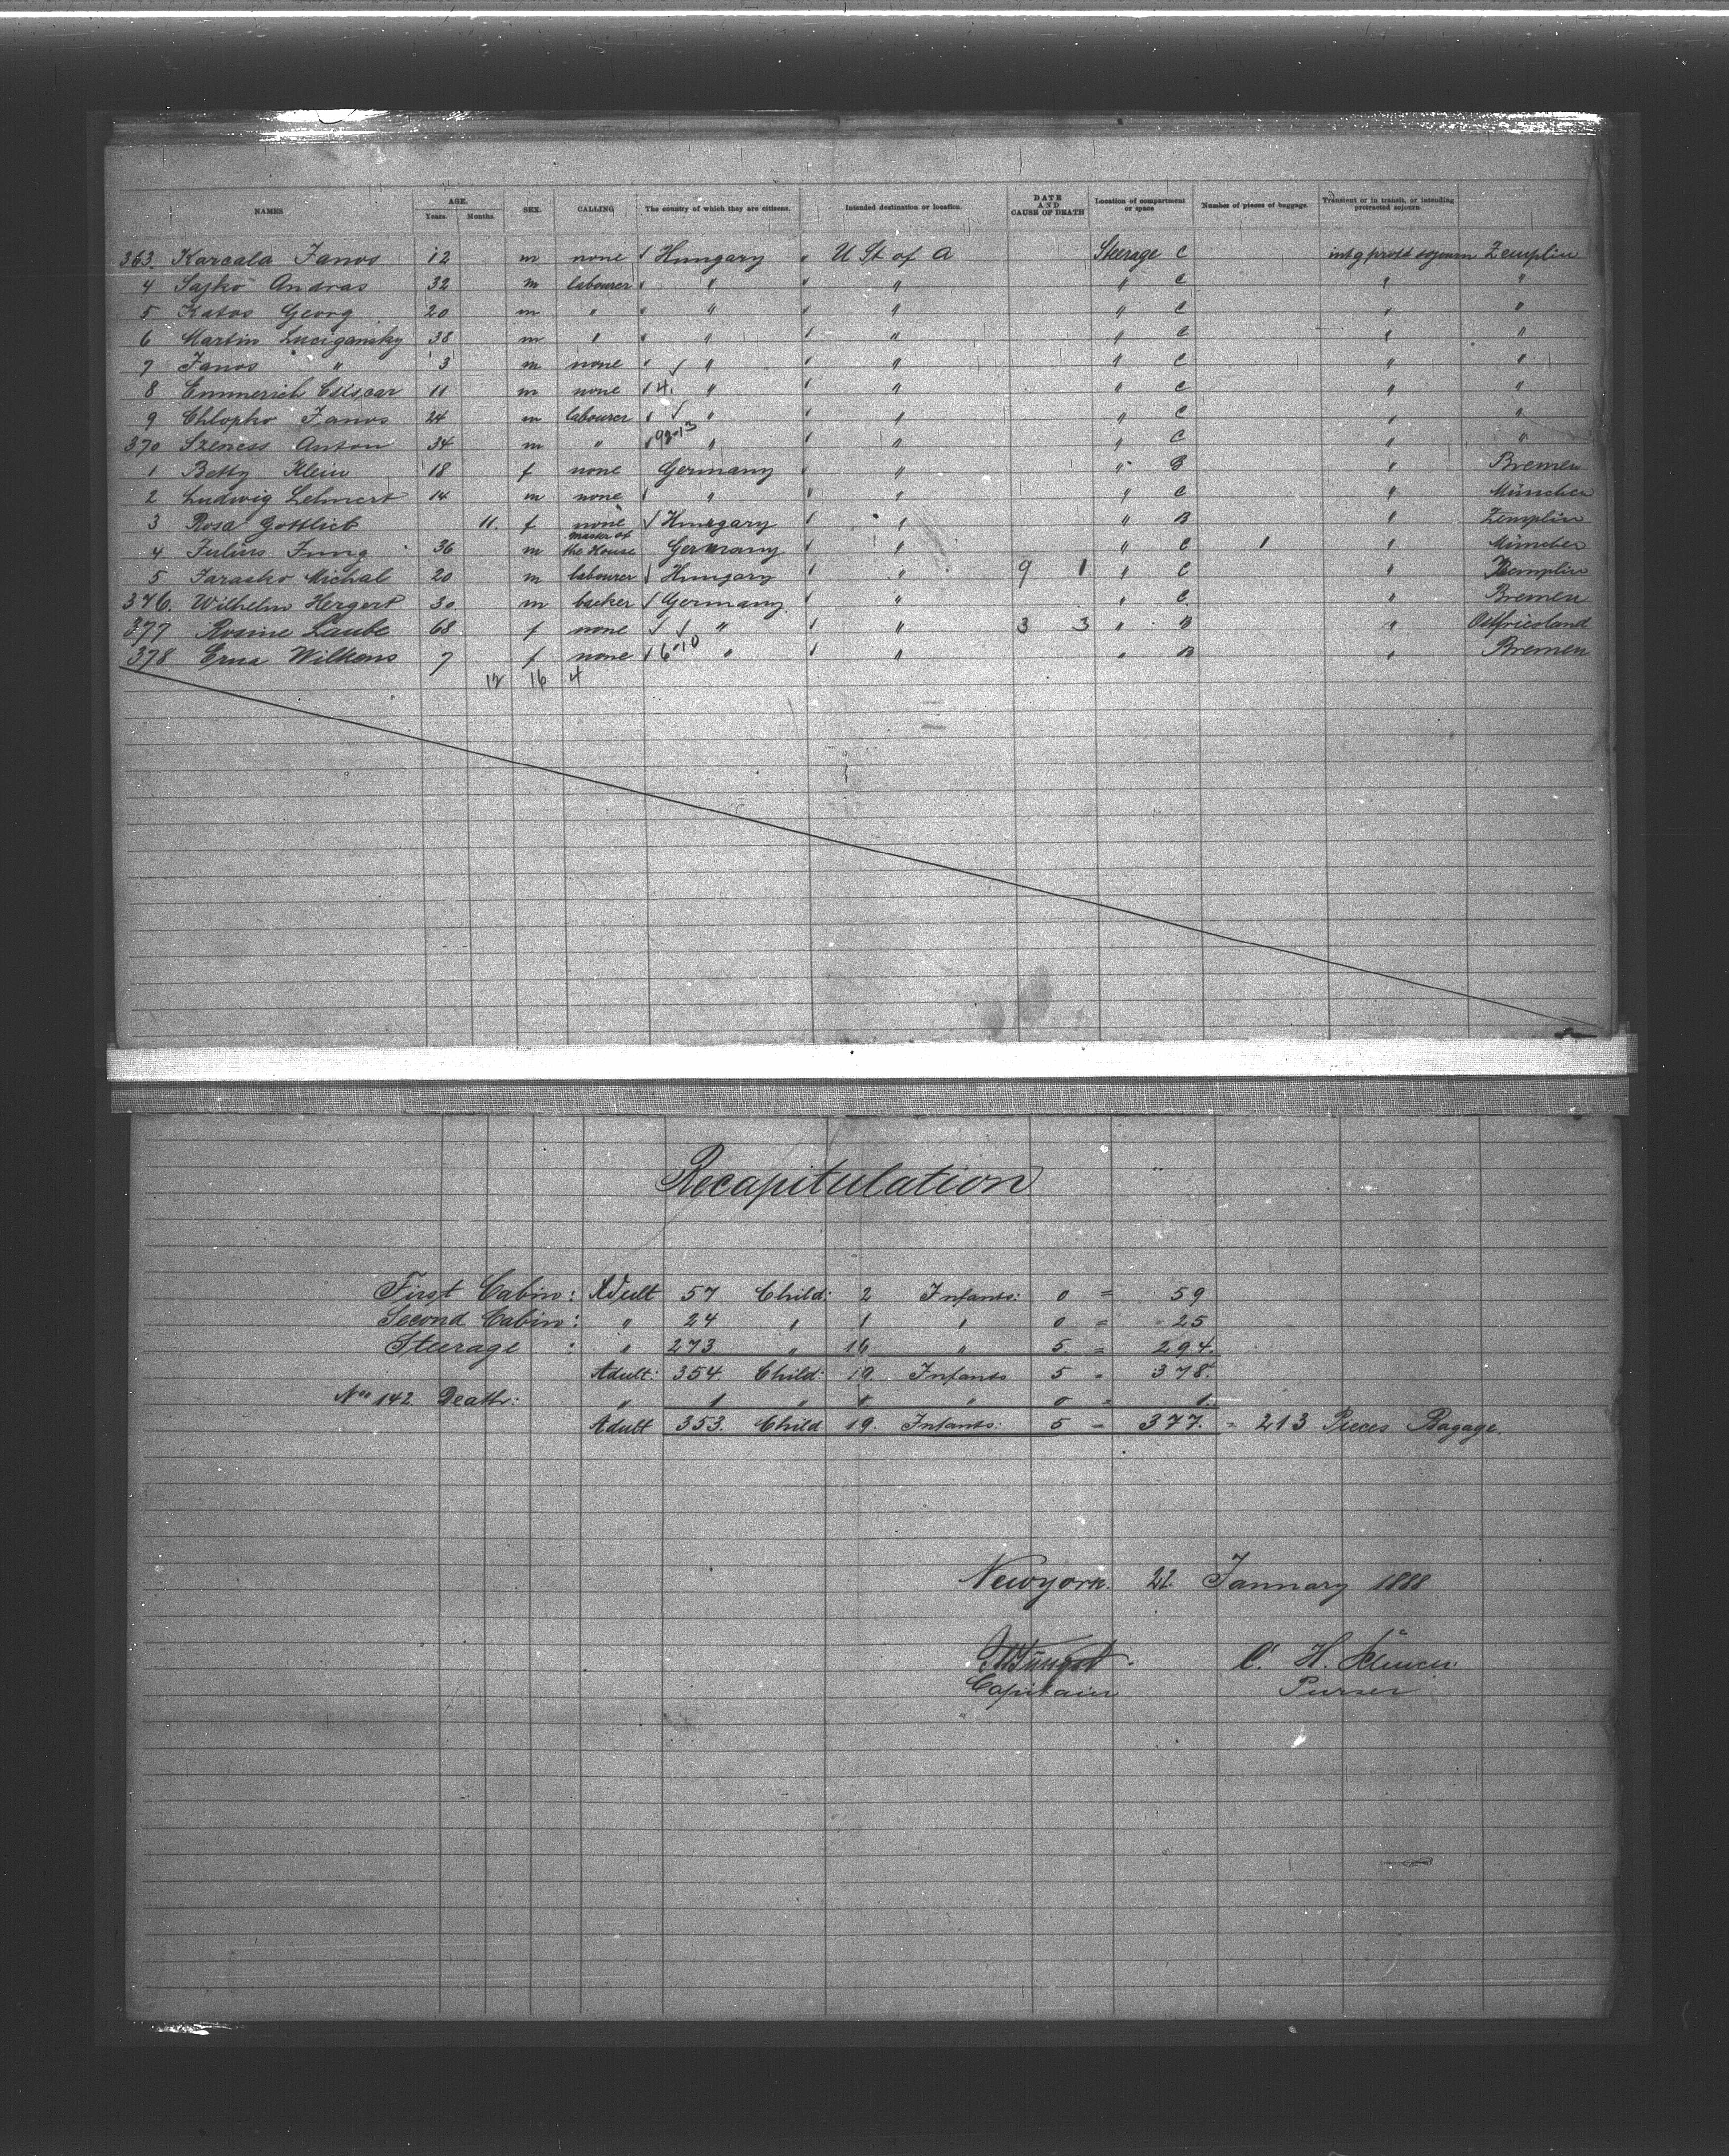 NAMES AGE. Years. Months. SEX. CALLING The country of which they are citizens. Intended destination or location. DATE AND CAUSE OF DEATH Location of compartment or space Number of pieces of baggage. Transient or in transit, or intending protracted sojourn.
363. Karcala Janos 12 m none Hungary " U St of A Steerage C intg protd sojourn Zemplin
4 Sajko Andras 32 m labourer " " " C " "
5 Katos Georg 20 m " " " " C " "
6 Martin Lucigansky 38 m " " " " C " "
7 Janos " 3 m none " " " C " "
8 Emmerich 11 m none 4. " " " C " "
9 Chlopko Janos 24 m labourer " " " C " "
370 Szeness Anton 34 m " 98-13 " " " C " "
1 Betty Klein 18 f none Germany " " B " Bremen
2 Ludwig Lehnert 14 m none " " " C " München
3 Rosa Gottlieb 11. f none Hungary " " B " Zemplin
4. Julius Jung 36 m master of the House Germany " " C 1 " München
5 Jarasko Michal 20 m labourer Hungary " 9 1 " C " Zemplin
376. Wilhelm Hergert 30 m backer Germany. " " C. " Bremen
377 Rosine Laube 68 f none " " 3 3 " B " Ostfriesland
378 Erna Wilkens 7 f none 6-10 " " " B " Bremen
12 16 4
Recapitulation
First Cabin: Adult 57 Child: 2 Infants: 0 = 59
Second Cabin: " 24 " 1 " 0 = 25
Steerage : " 273 " 16 " 5. = 294.
Adult: 354. Child: 19. Infants 5 = 378.
Nro 142 Death: " 1 " 0 " 0 = 1.
Adult 353. Child 19. Infants: 5 = 377. = 213 Pieces Bagage.
Newyork. 22. January 1888
C. H.
Capitain Purser